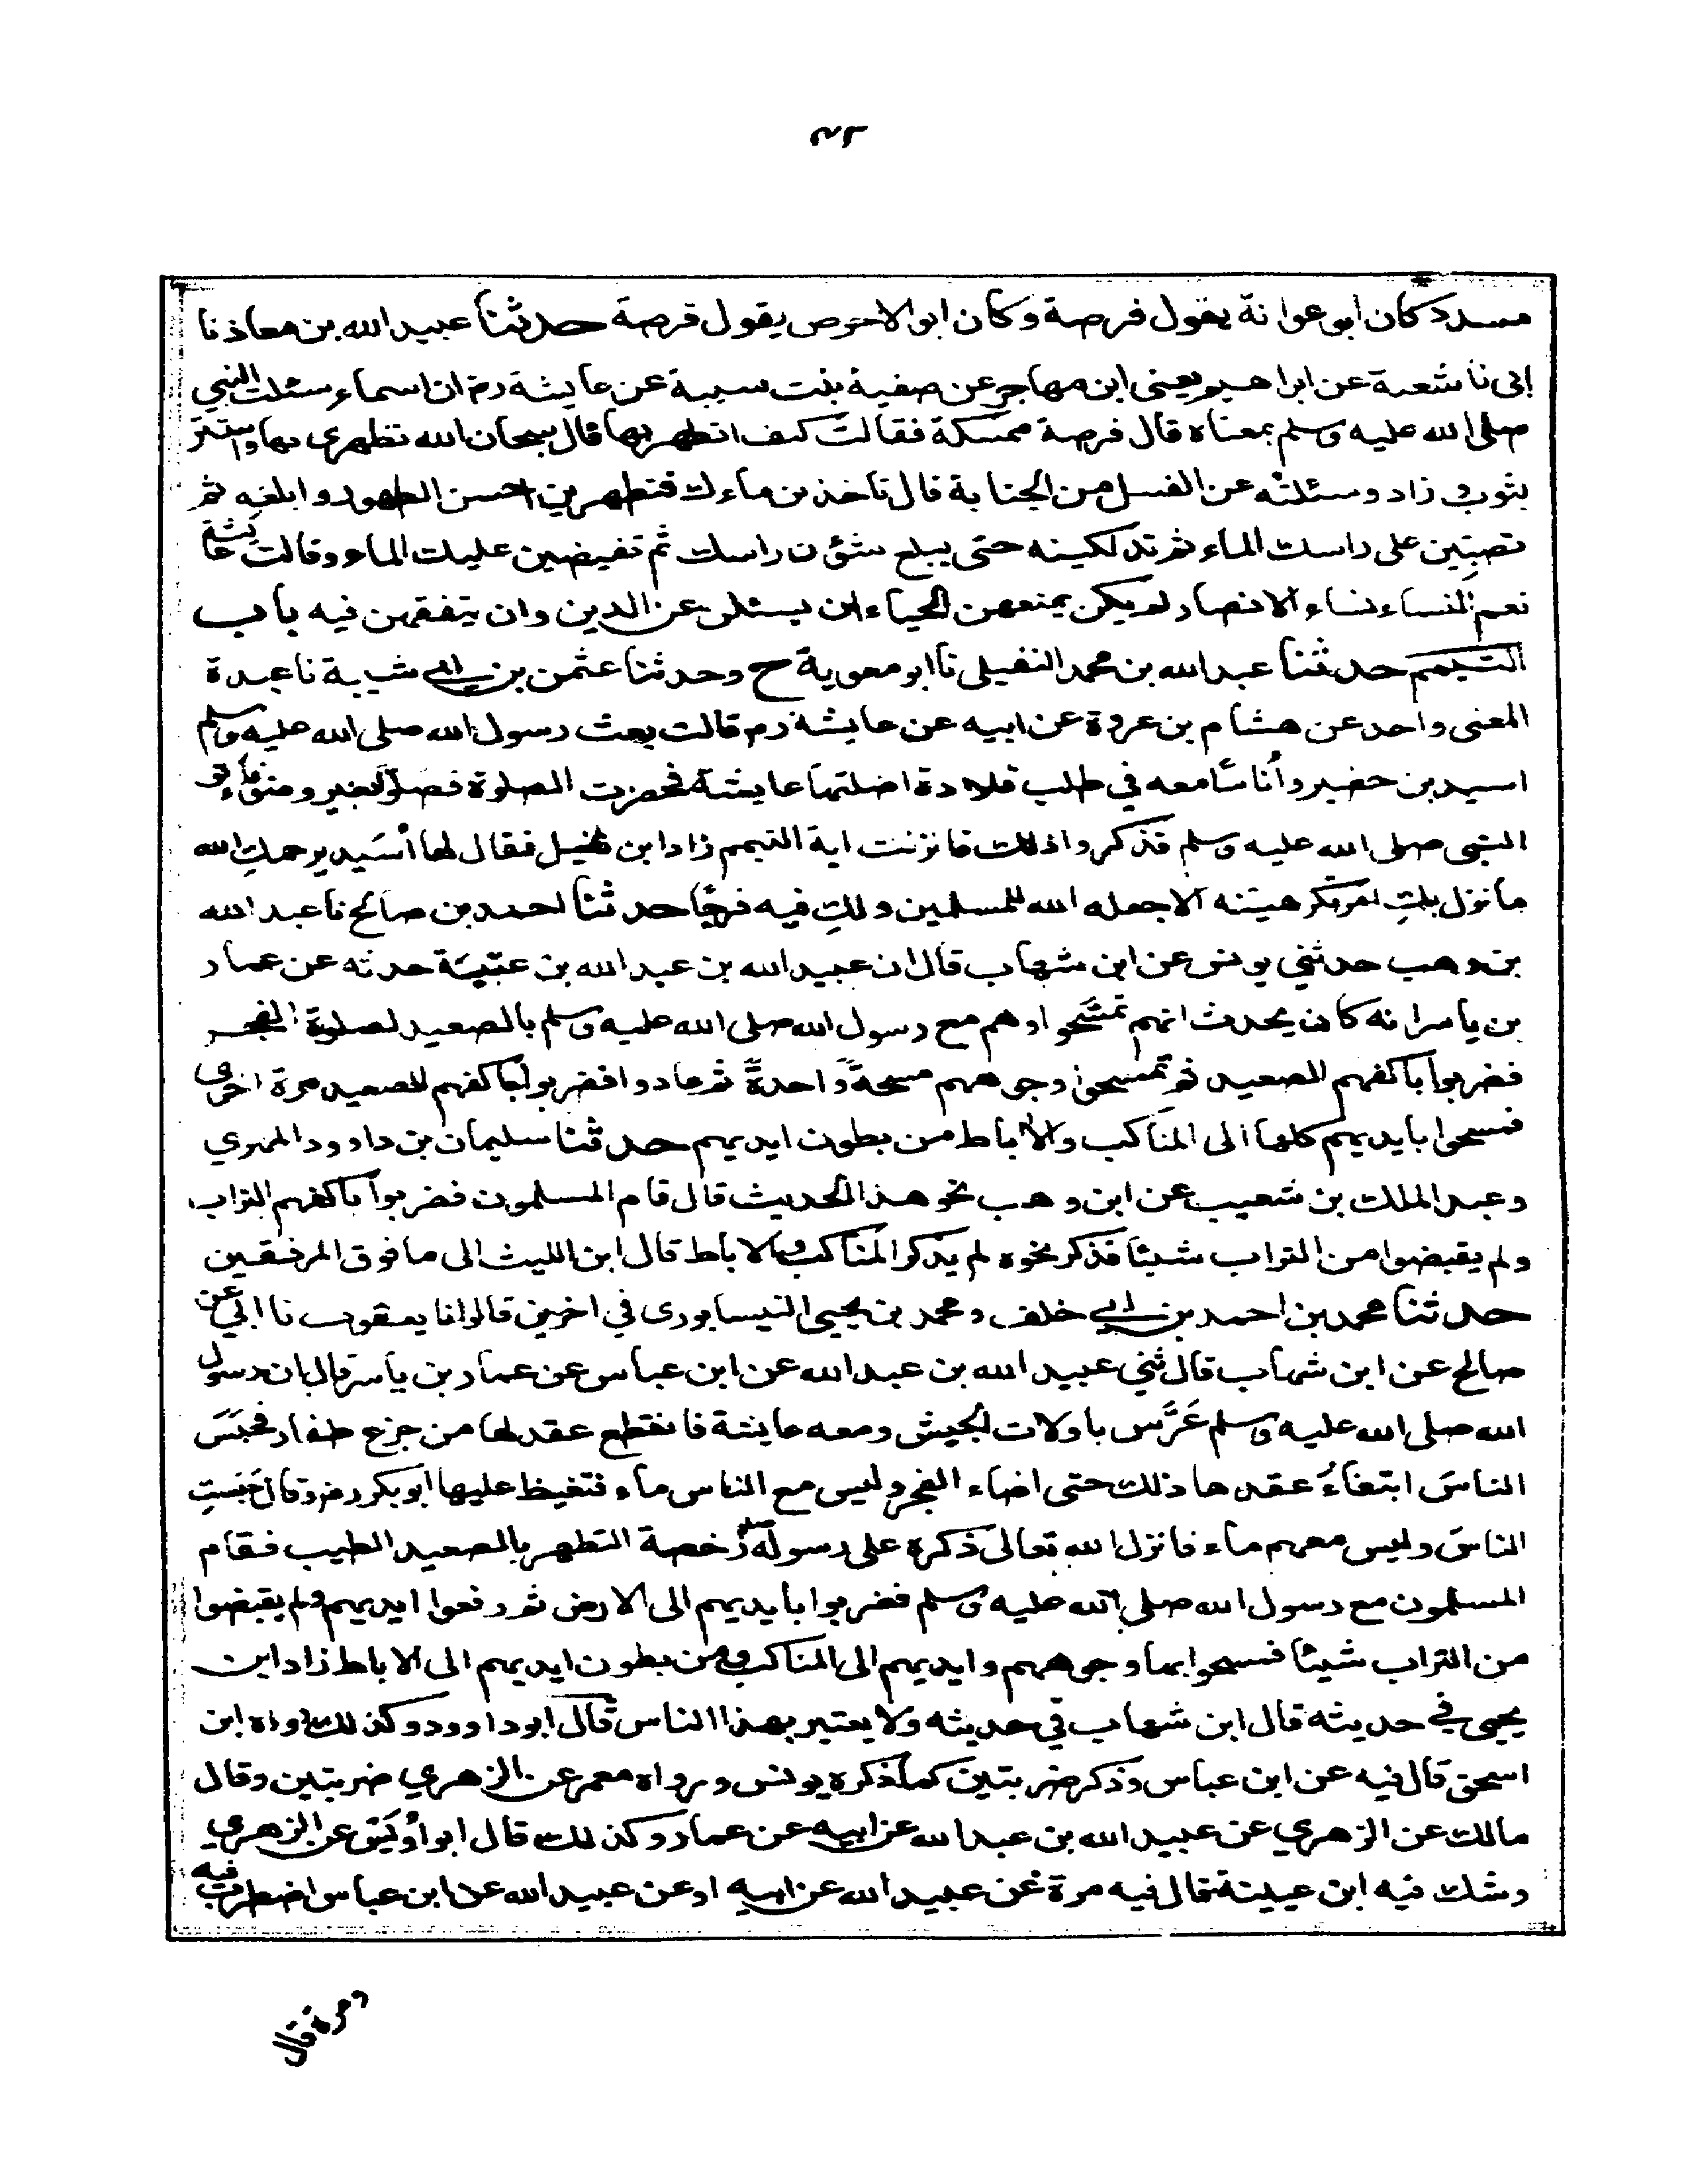 مسدد كان ابو عوانة يقول فرصة وكان ابو الاحوص يقول قرصة حدثنا عبيد الله بن معاذ نا
ابي نا شعبة عن ابراهيم يعنى ابن مهاجر عن صفية بنت سيبة عن عايشة رم ان اسماء سئلت النبي
صلى الله عليه وسلم بمعناه قال فرصة ممسكة فقالت كيف اتطهر بها قال سبحان الله تطهرى بها واستتر
بثوب وزاد وسئلته عن الغسل من الجنابة قال تاخذين ماءك فتطهرين احسن الطهور وابلغه ثم
تصبّين على راسك الماء ثم تدلكينه حتى يبلغ شؤن راسك ثم تفيضين عليك الماء وقالت عايشة
نعم النساء نساء الانصار لم يكن يمنعهن الحياء ان يسئلن عن الدين وان يتفقهن فيه باب
التيمم حدثنا عبد الله بن محمد النفيلى نا ابو معوية ح وحدثنا عثمن بن ابي شيبة نا عبدة
المعنى واحد عن هشام بن عروة عن ابيه عن عايشة رم قالت بعث رسول الله صلى الله عليه وسلم
اسيد بن حضير وأناسًا معه في طلب قلادة اضلتها عايشة فحضرت الصلوة فصلّوا بغير وضوء فاتو
النبى صلى الله عليه وسلم فذكروا ذلك فانزلت اية التيمم زاد ابن نفيل فقال لها أسَيد يرحمكِ الله
ما نزل بكِ امر تكرهينه الا جعله الله للمسلمين ولكِ فيه فرجًا حدثنا احمد بن صالح نا عبد الله
بن وهب حدثني يونس عن ابن شهاب قال ان عبيد الله بن عبد الله بن عتبَة حدثه عن عمار
بن ياسر انه كان يحدث انهم تمسَّحوا وهم مع رسول الله صلى الله عليه وسلم بالصعيد لصلوة الفجر
فضربوا باكفهم الصعيد ثم تمسحوا وجوههم مسحةً واحدةً ثم عادوا فضربوا باكفهم الصعيد مرة اخرى
فمسحوا بايديهم كلها الى المناكب والاباط من بطون ايديهم حدثنا سليمان بن داوود المهري
وعبد الملك بن شعيب عن ابن وهب نحو هذا الحديث قال قام المسلمون فضربوا باكفهم التراب
ولم يقبضوا من التراب شيئا فذكر نحوه لم يذكر المناكب والاباط قال ابن الليث الى ما فوق المرفقين
حدثنا محمد بن احمد بن ابي خلف ومحمد بن يحيى النيسابورى في اخرين قالوا نا يعقوب نا ابي عن
صالح عن ابن شهاب قال ثني عبيد الله بن عبد الله عن ابن عباس عن عمار بن ياسر قال ان رسول
الله صلى الله عليه وسلم عَرَّس باولات الجيش ومعه عايشة فانقطع عقد لها من جزع ظفار فحَبَسَ
الناسَ ابتغاءُ عقدها ذلك حتى اضاء الفجر وليس مع الناس ماء فتغيظ عليها ابو بكر رض وقال حَبَستِ
الناسَ وليس معهم ماء فانزل الله تعالى ذكره على رسوله صلعم رخصة التطهر بالصعيد الطيب فقام
المسلمون مع رسول الله صلى الله عليه وسلم فضربوا بايديهم الى الارض ثم رفعوا ايديهم ولم يقبضوا
من التراب شيئا فمسحوا بها وجوههم وايديهم الى المناكب ومن بطون ايديهم الى الاباط زاد ابن
يحيى في حديثه قال ابن شهاب في حديثه ولا يعتبر بهذا الناس قال ابو داوود وكذلك رواه ابن
اسحق قال فيه عن ابن عباس وذكر ضربتين كما ذكره يونس ورواه معمر عن الزهري ضربتين وقال
مالك عن الزهري عن عبيد الله بن عبد الله عن ابيه عن عمار وكذلك قال ابو أوَيس عن الزهري
وشك فيه ابن عيينة قال فيه مرة عن عبيد الله عن ابيه او عن عبيد الله عن ابن عباس اضطرب فيه
ومرة قال